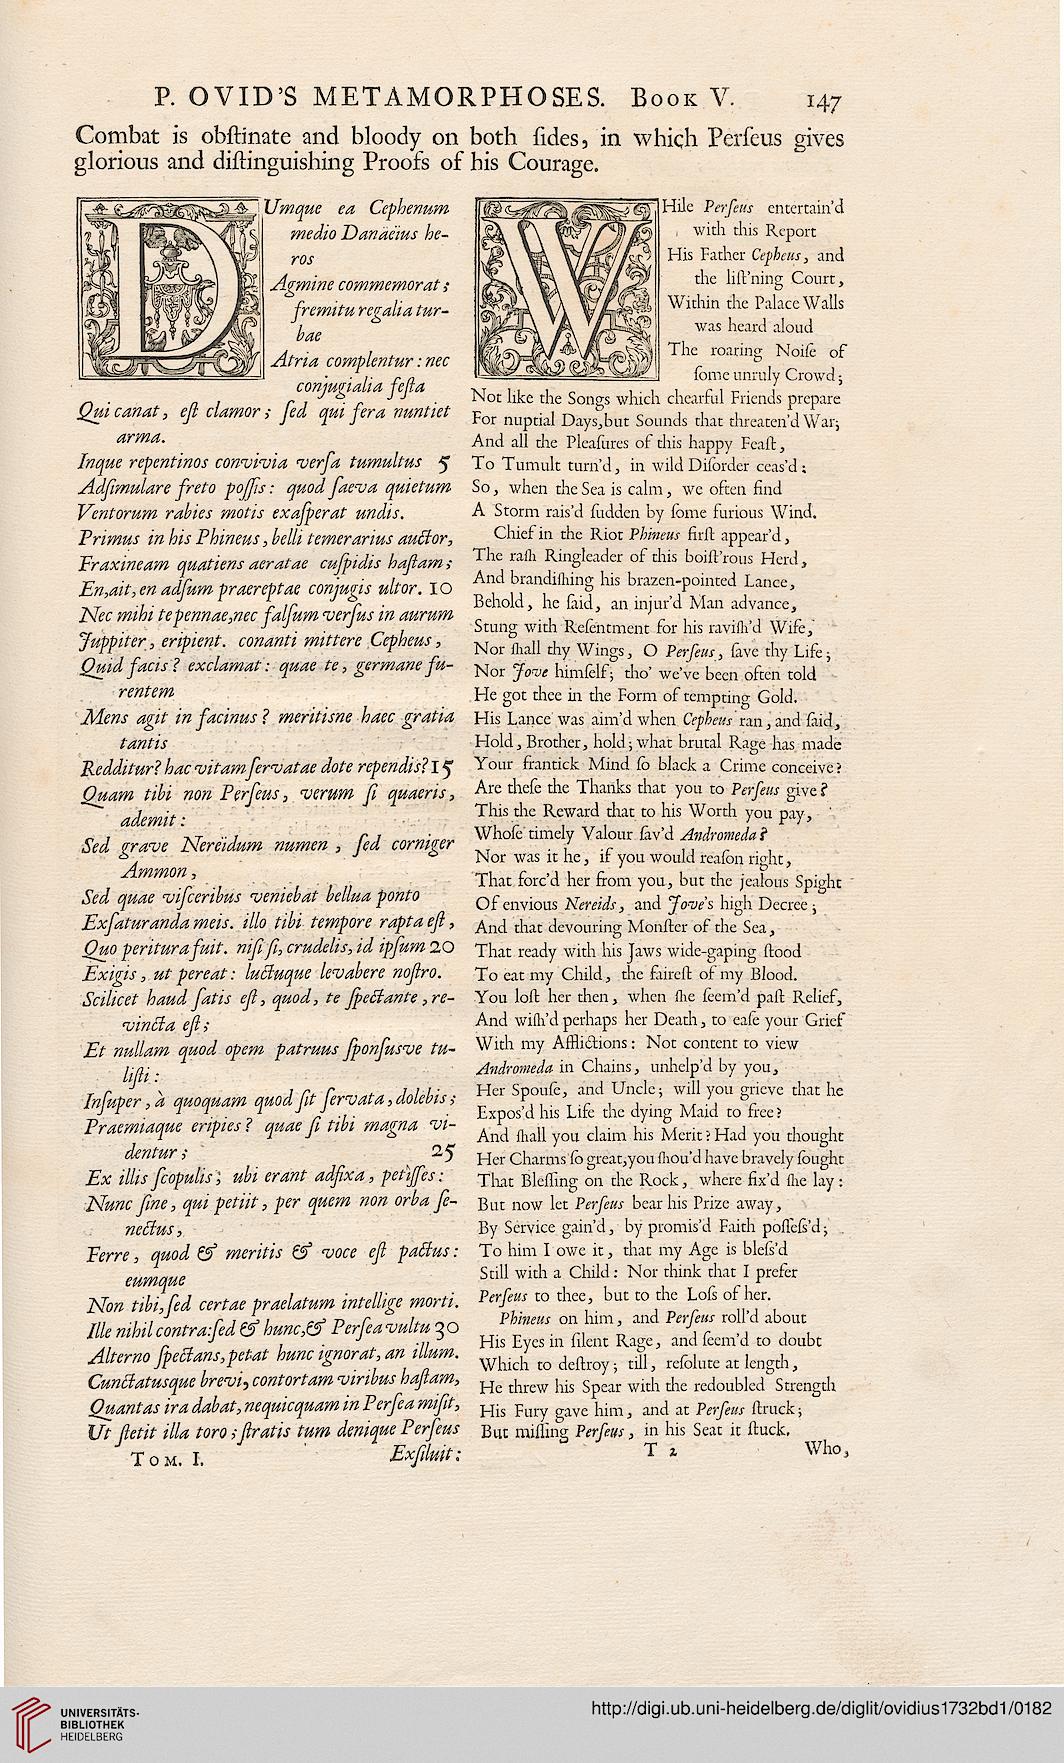 P. OVID'S METAMORPHOSES. BOOK V. 147
Combat is obſtinate and bloody on both ſides, in which Perſeus gives
glorious and diſtinguishing Proofs of his Courage.
DUmque ea Cephenum
medio Danaëius he-
ros
Agmine commemorat;
fremitu regalia tur-
bae
Atria complentur: nec
conjugialia feſta
Qui canat, eſt clamor; ſed qui fera nuntiet
arma.
Inque repentinos convivia verſa tumultus 5
Adſimulare freto poſſis: quod ſaeva quietum
Ventorum rabies motis exaſperat undis.
Primus in his Phineus, belli temerarius auctor,
Fraxineam quatiens aeratae cuſpidis haſtam;
En, ait, en adſum praereptae conjugis ultor. 10
Nec mihi te pennae, nec falſum verſus in aurum
Juppiter, eripient. conanti mittere Cepheus,
Quid facis? exclamat: quae te, germane fu-
rentem
Mens agit in facinus? meritisne haec gratia
tantis
Redditur? hac vitam ſervatae dote rependis? 15
Quam tibi non Perſeus, verum ſi quaeris,
ademit:
Sed grave Nereïdum numen, ſed corniger
Ammon,
Sed quae viſceribus veniebat bellua ponto
Exſaturanda meis. illo tibi tempore rapta eſt,
Quo peritura fuit. niſi ſi, crudelis, id ipſum 20
Exigis, ut pereat: luctuque levabere noſtro.
Scilicet haud ſatis eſt, quod, te ſpectante, re-
vincta eſt;
Et nullam quod opem patruus ſponſusve tu-
liſti:
Inſuper, à quoquam quod ſit ſervata, dolebis;
Praemiaque eripies? quae ſi tibi magna vi-
dentur; 25
Ex illis ſcopulis; ubi erant adfixa, petiſſes:
Nunc ſine, qui petiit, per quem non orba ſe-
nectus,
Ferre, quod & meritis & voce eſt pactus:
eumque
Non tibi, ſed certae praelatum intellige morti.
Ille nihil contra: ſed & hunc, & Perſea vultu 30
Alterno ſpectans, petat hunc ignorat, an illum.
Cunctatusque brevi, contortam viribus haſtam,
Quantas ira dabat, nequicquam in Perſea miſit,
Ut ſtetit illa toro; ſtratis tum denique Perſeus
TOM. I. Exſiluit:
WHile Perſeus entertain'd
with this Report
His Father Cepheus, and
the liſt'ning Court,
Within the Palace Walls
was heard aloud
The roaring Noiſe of
ſome unruly Crowd;
Not like the Songs which chearful Friends prepare
For nuptial Days, but Sounds that threaten'd War;
And all the Pleaſures of this happy Feaſt,
To Tumult turn'd, in wild Diſorder ceas'd:
So, when the Sea is calm, we often find
A Storm rais'd ſudden by ſome furious Wind.
Chief in the Riot Phineus firſt appear'd,
The raſh Ringleader of this boiſt'rous Herd,
And brandiſhing his brazen-pointed Lance,
Behold, he ſaid, an injur'd Man advance,
Stung with Reſentment for his raviſh'd Wife,
Nor ſhall thy Wings, O Perſeus, ſave thy Life;
Nor Jove himſelf; tho' we've been often told
He got thee in the Form of tempting Gold.
His Lance was aim'd when Cepheus ran, and ſaid,
Hold, Brother, hold; what brutal Rage has made
Your frantick Mind ſo black a Crime conceive?
Are theſe the Thanks that you to Perſeus give?
This the Reward that to his Worth you pay,
Whoſe timely Valour ſav'd Andromeda?
Nor was it he, if you would reaſon right,
That forc'd her from you, but the jealous Spight
Of envious Nereids, and Jove's high Decree;
And that devouring Monſter of the Sea,
That ready with his Jaws wide-gaping ſtood
To eat my Child, the faireſt of my Blood.
You loſt her then, when ſhe ſeem'd paſt Relief,
And wiſh'd perhaps her Death, to eaſe your Grief
With my Afflictions: Not content to view
Andromeda in Chains, unhelp'd by you,
Her Spouſe, and Uncle; will you grieve that he
Expos'd his Life the dying Maid to free?
And ſhall you claim his Merit? Had you thought
Her Charms ſo great, you ſhou'd have bravely ſought
That Bleſſing on the Rock, where fix'd ſhe lay:
But now let Perſeus bear his Prize away,
By Service gain'd, by promis'd Faith poſſeſs'd;
To him I owe it, that my Age is bleſs'd
Still with a Child: Nor think that I prefer
Perſeus to thee, but to the Loſs of her.
Phineus on him, and Perſeus roll'd about
His Eyes in ſilent Rage, and ſeem'd to doubt
Which to deſtroy; till, reſolute at length,
He threw his Spear with the redoubled Strength
His Fury gave him, and at Perſeus ſtruck;
But miſſing Perſeus, in his Seat it ſtuck.
T 2 Who,
UNIVERSITÄTS-
BIBLIOTHEK
HEIDELBERG
http://digi.ub.uni-heidelberg.de/diglit/ovidius1732bd1/0182